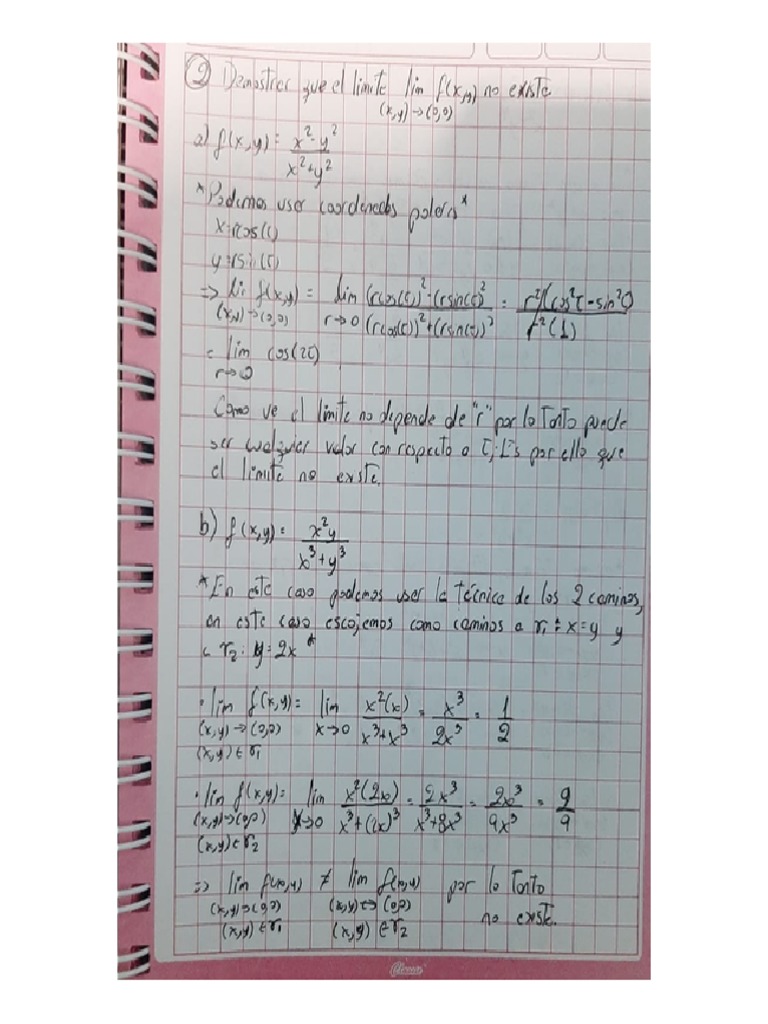 ② Demostrar que el limite lim f(x,y) no existe
(x,y)→(0,0)
a) f(x,y) = x² - y² / x² + y²
*Podemos usar coordenadas polares*
x=rcos(τ)
y=rsin(τ)
⇒ lim f(x,y) = lim (rcos(τ))² - (rsin(τ))² / (rcos(τ))² + (rsin(τ))² = r²(cos²τ - sin²τ) / r²(1)
(x,y)→(0,0) r→0
= lim cos(2τ)
r→0
Como ve el limite no depende de "r" por lo tanto puede
ser cualquier valor con respecto a τ; Es por ello que
el limite no existe.
b) f(x,y) = x²y / x³ + y³
*En este caso podemos usar la técnica de los 2 caminos,
en este caso escojemos como caminos a r₁ : x=y y
r₂: y=2x *
· lim f(x,y) = lim x²(x) / x³+x³ = x³ / 2x³ = 1/2
(x,y)→(0,0) x→0
(x,y) ∈ r₁
· lim f(x,y) = lim x²(2x) / x³+(2x)³ = 2x³ / x³+8x³ = 2x³ / 9x³ = 2/9
(x,y)→(0,0) x→0
(x,y) ∈ r₂
⇒ lim f(x,y) ≠ lim f(x,y) por lo tanto
(x,y)→(0,0) (x,y)→(0,0) no existe.
(x,y) ∈ r₁ (x,y) ∈ r₂